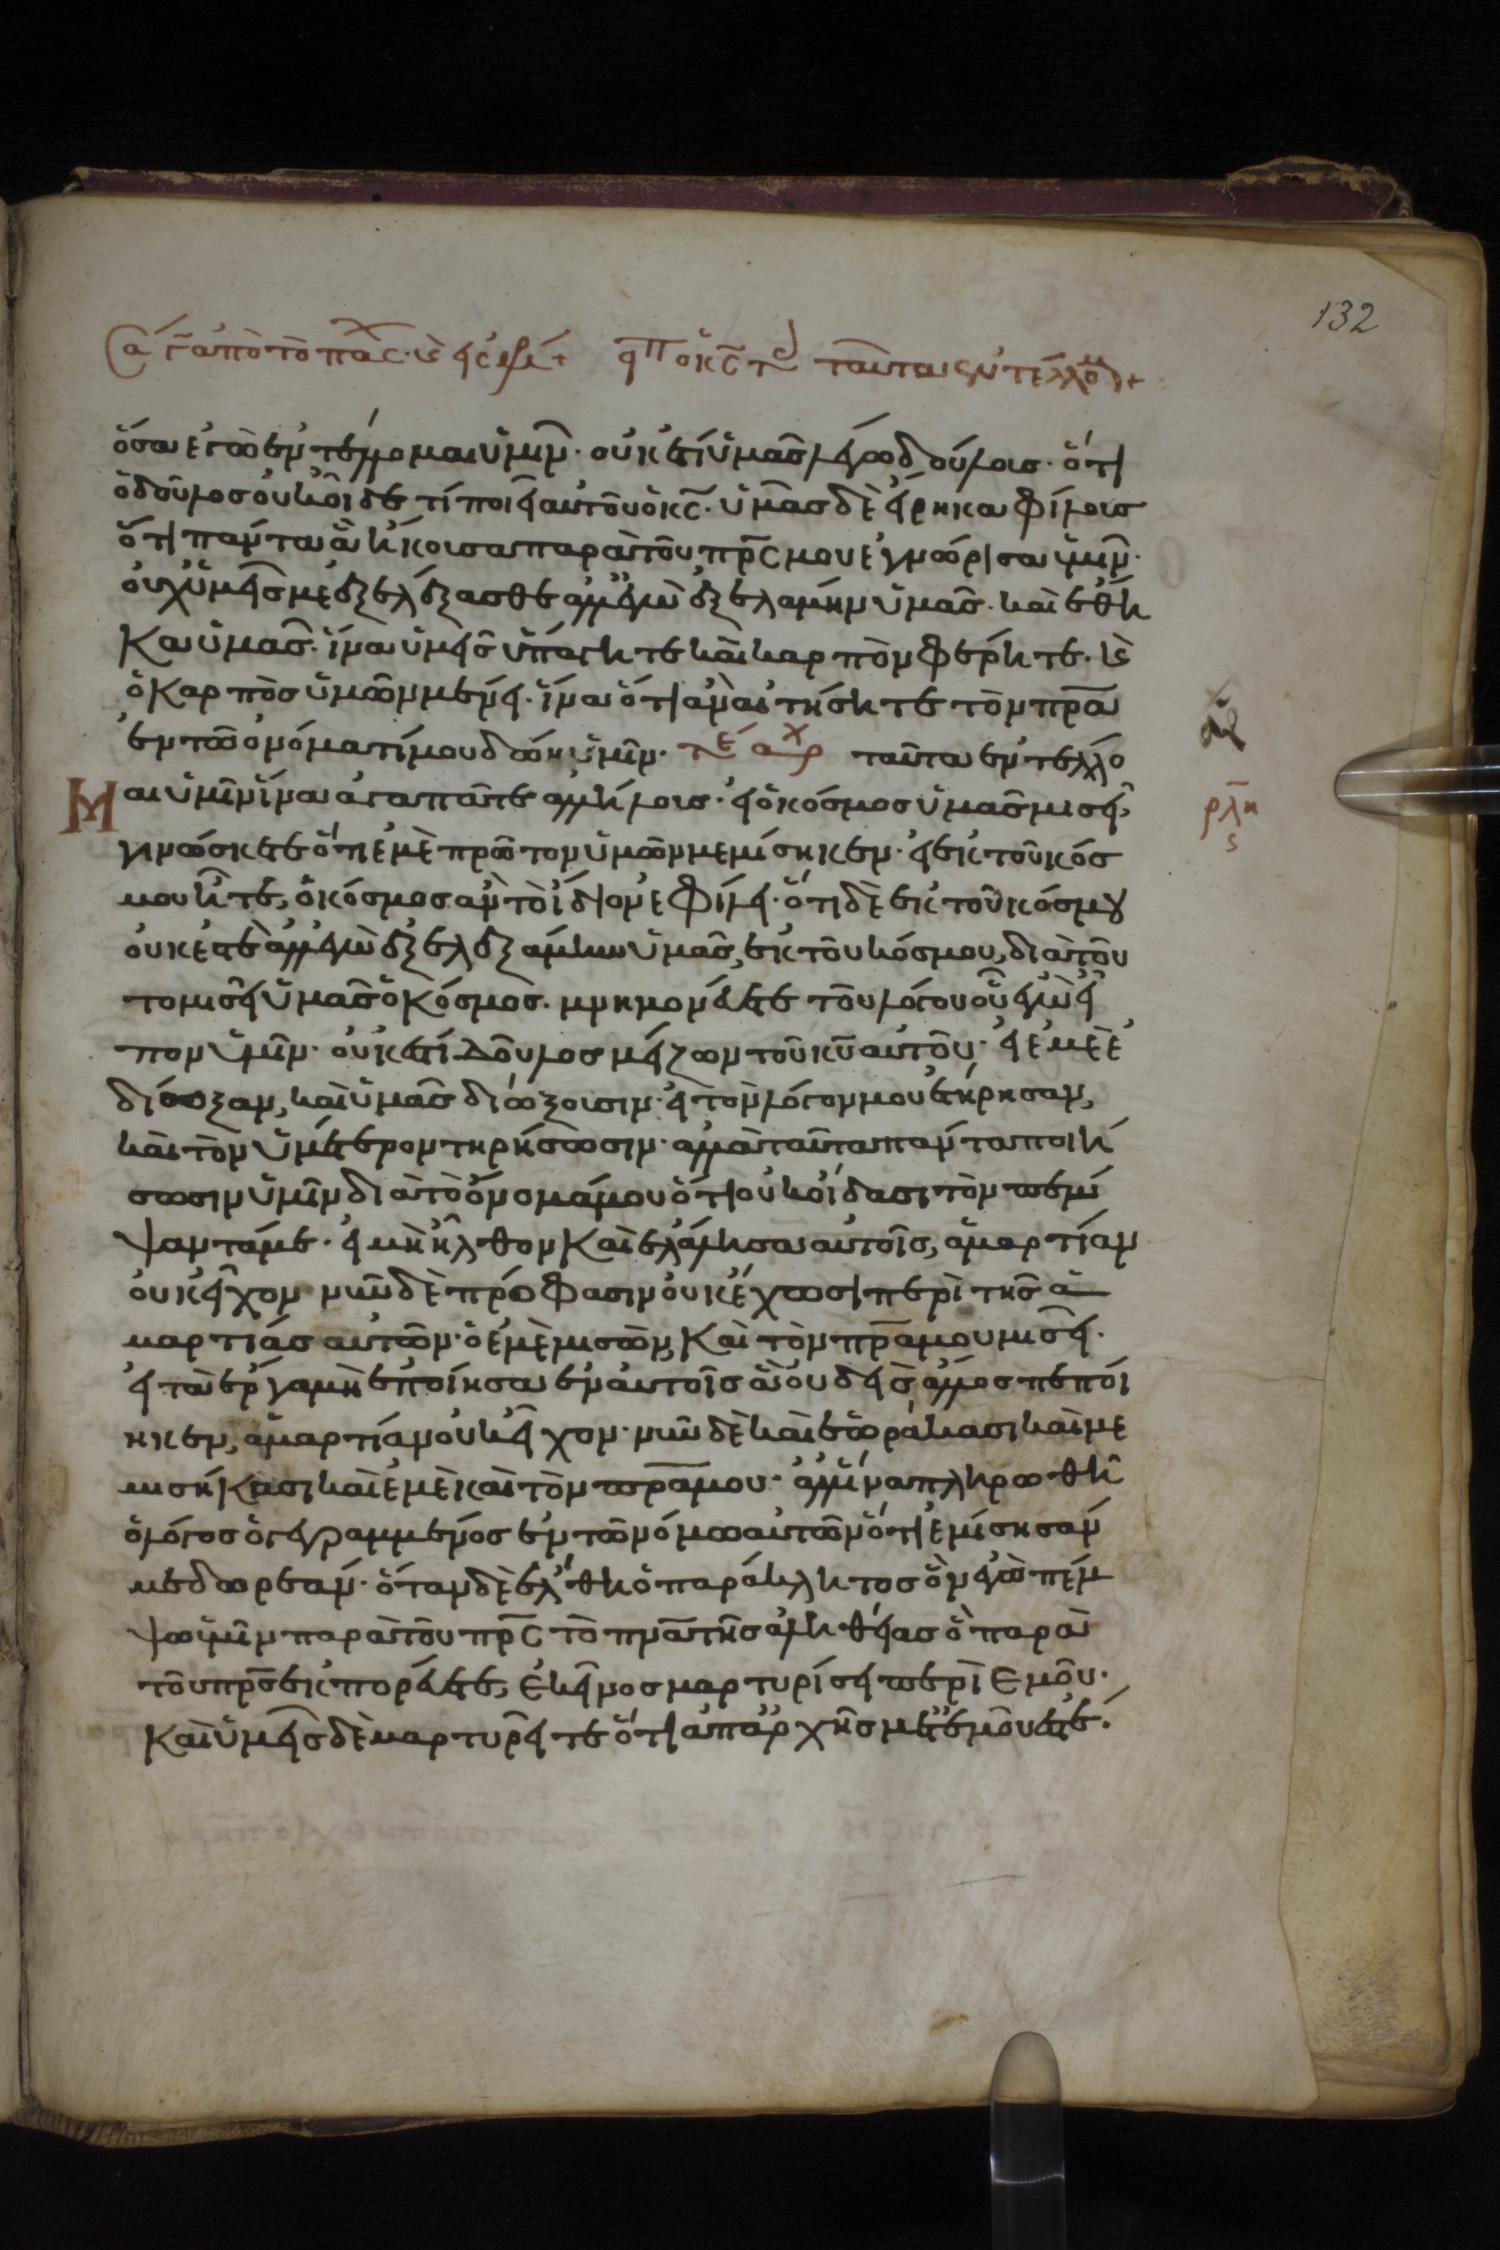 132
ὅσα ἐγὼ ἐντέλλομαι ὑμῖν· οὐκέτι ὑμᾶς λέγω δούλους· ὅτι
ὁ δοῦλος οὐκ οἶδε τί ποιεῖ αὐτοῦ ὁ κς̄· ὑμᾶς δὲ εἴρηκα φίλους
ὅτι πάντα ἃ ἤκουσα παρὰ τοῦ πρ̄ς μου ἐγνώρισα ὑμῖν·
οὐχ ὑμεῖς με ἐξελέξασθε ἀλλ' ἐγὼ ἐξελεξάμην ὑμᾶς· καὶ ἔθη
κα ὑμᾶς· ἵνα ὑμεῖς ὑπάγητε καὶ καρπὸν φέρητε· καὶ
ὁ καρπὸς ὑμῶν μένει· ἵνα ὅτι ἂν αἰτήσητε τὸν πρ̄α
ἐν τῷ ὀνόματί μου δώῃ ὑμῖν· τε αρχ ταῦτα ἐντέλλο
Μαι ὑμῖν ἵνα ἀγαπᾶτε ἀλλήλους· εἰ ὁ κόσμος ὑμᾶς μισεῖ,
γινώσκετε ὅτι ἐμὲ πρῶτον ὑμῶν μεμίσηκεν· εἰ ἐκ τοῦ κόσ
μου ἦτε, ὁ κόσμος ἂν τὸ ἴδιον ἐφίλει· ὅτι δὲ ἐκ τοῦ κόσμου
οὐκ ἐστὲ ἀλλ' ἐγὼ ἐξελεξάμην ὑμᾶς, ἐκ τοῦ κόσμου, διὰ τοῦ
το μισεῖ ὑμᾶς ὁ κόσμος· μνημονεύετε τοῦ λόγου οὗ ἐγὼ εἶ
πον ὑμῖν· οὐκ ἔστι δοῦλος μείζων τοῦ κῡ αὐτοῦ· εἰ ἐμὲ ἐ
δίωξαν, καὶ ὑμᾶς διώξουσιν· εἰ τὸν λόγον μου ἐτήρησαν,
καὶ τὸν ὑμέτερον τηρήσωσιν· ἀλλὰ ταῦτα πάντα ποιή
σωσιν ὑμῖν διὰ τὸ ὄνομά μου ὅτι οὐκ οἴδασι τὸν πέμ
ψαντά με· εἰ μὴ ἦλθον καὶ ἐλάλησα αὐτοῖς, ἁμαρτίαν
οὐκ εἶχον νῦν δὲ πρόφασιν οὐκ ἔχωσι περὶ τῆς ἁ
μαρτίας αὐτῶν· ὁ ἐμὲ μισῶν, καὶ τὸν πρ̄α μου μισεῖ·
εἰ τὰ ἔργα μὴ ἐποίησα ἐν αὐτοῖς ἃ οὐδεὶς ἄλλος πεποί
ηκεν, ἁμαρτίαν οὐκ εἶχον· νῦν δὲ καὶ ἑωράκασι καὶ με
μισήκασι καὶ ἐμὲ καὶ τὸν πρ̄α μου· ἀλλ' ἵνα πληρωθῇ
ὁ λόγος ὁ γεγραμμένος ἐν τῷ νόμω αὐτῶν ὅτι ἐμίσησάν
με δωρεάν· ὅταν δὲ ἔλθῃ ὁ παράκλητος ὃν ἐγὼ πέμ
ψω ὑμῖν παρὰ τοῦ πρ̄ς τὸ πν̄α τῆς ἀληθείας ὃ παρὰ
τοῦ πρ̄ς ἐκπορεύεται, ἐκεῖνος μαρτυρίσει περὶ ἐμοῦ·
καὶ ὑμεῖς δὲ μαρτυρεῖτε ὅτι ἀπ' ἀρχῆς μετ' ἐμοῦ ἐστέ·
ρλη
ς